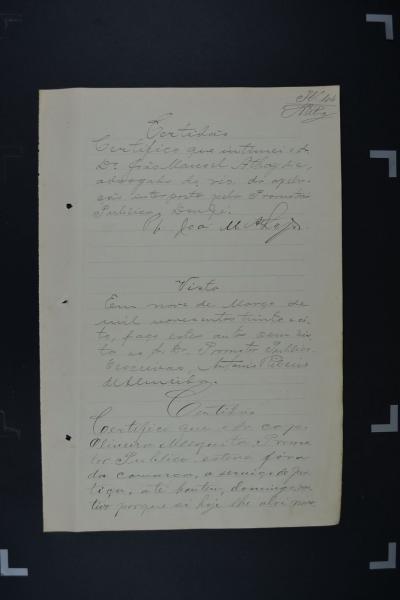 Certidão
Certifico que intimei o
Dr. João Manoel
advogado do réo, da apella-
ção interposta pelo Promotor
Publico. Dou fé.
Visto
Em nove de Março de
mil novecentos trinta e oi-
to, faço estes autos com vis-
ta ao Dr. Promotor Publico.
Escrivão, Antonio Ribeiro
de Almeida.
Certidão
Certifico que o Dr.
Oliveira Mesquita, Promo-
tor Publico, esteve fóra
da comarca, a serviço da jus-
tiça, até hontem, domingo, mo-
tivo porque só hoje lhe abri